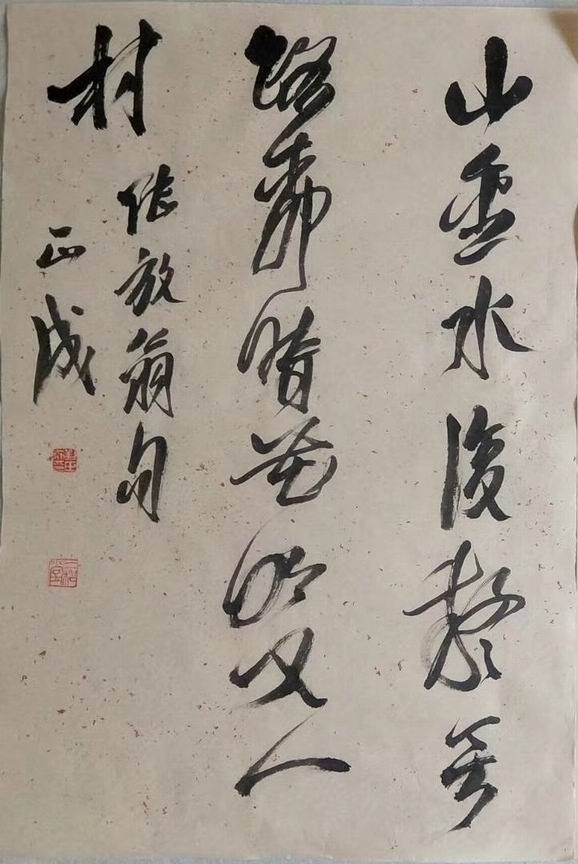 山重水復疑無
路柳暗花明又一
村
陸放翁句
正成